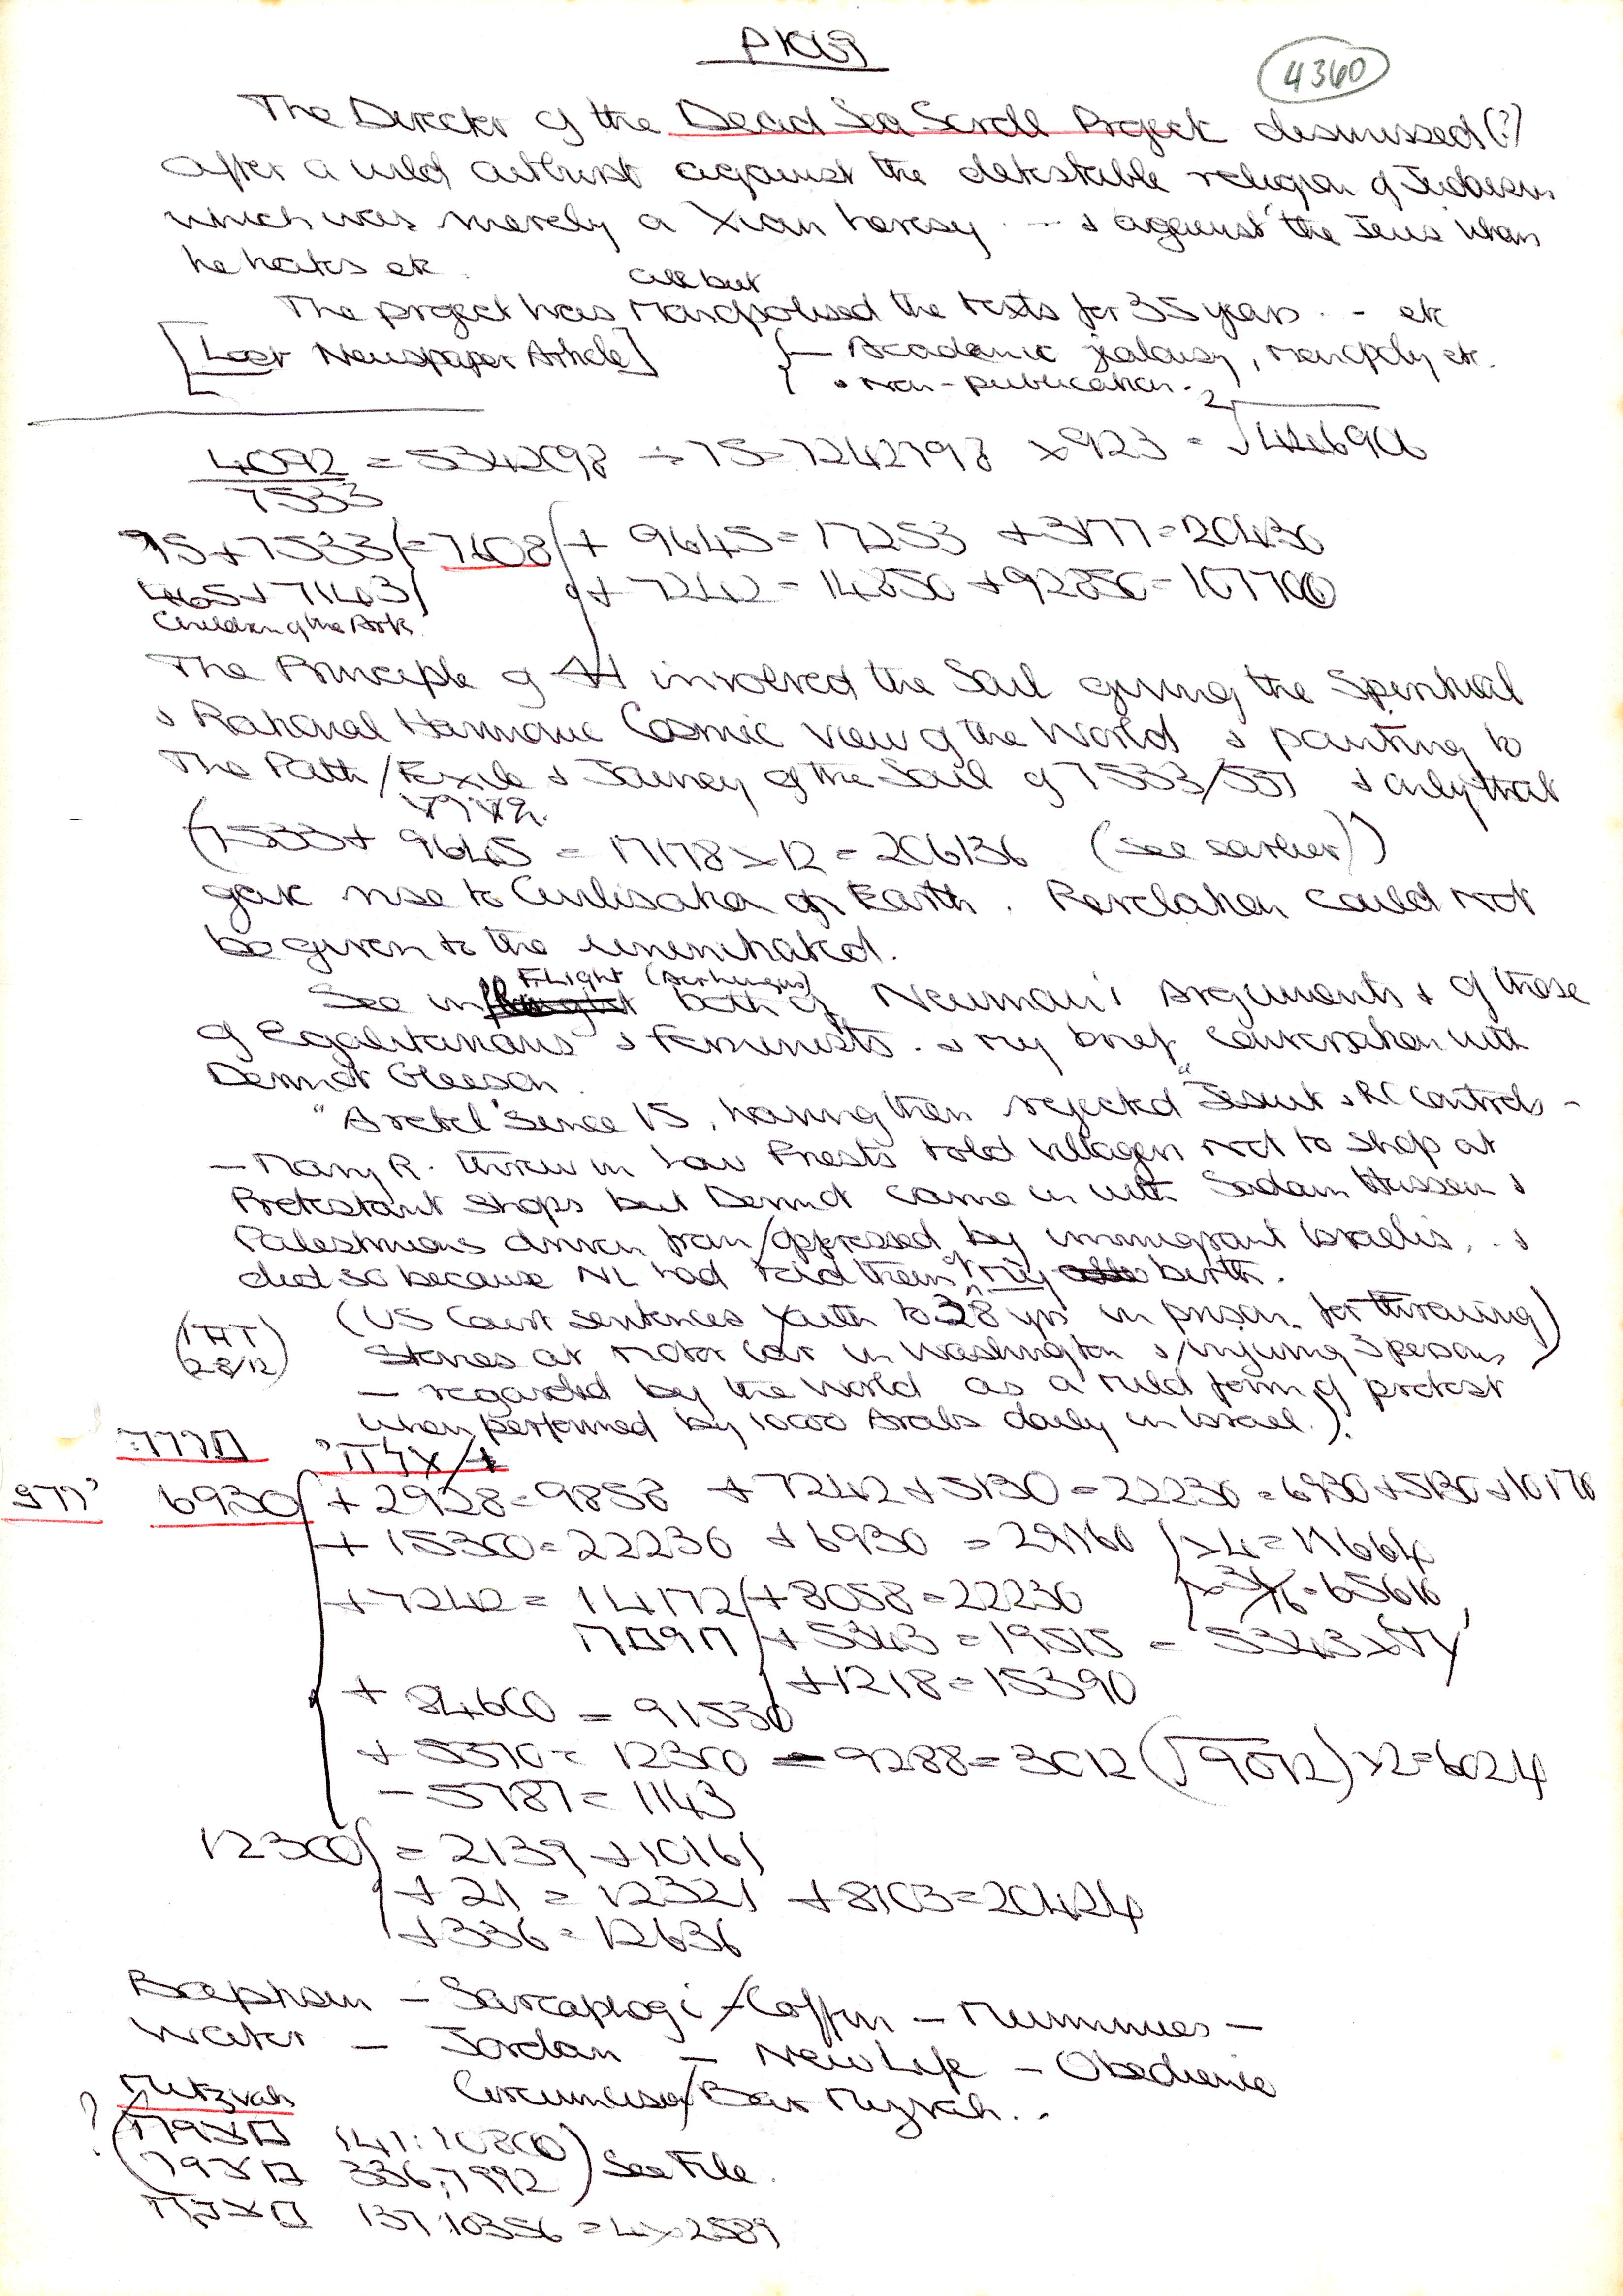 PK19
4360
The Director of the Dead Sea Scroll Project dismissed (?)
after a wild outburst against the detestable religion of Judaism
which was merely a Xian heresy ... & against the Jews whom
he hates etc.
all but
The project has monopolised the texts for 35 years . - etc
[Lost Newspaper Article] {— Academic jealousy, monopoly etc.
& Non-publication.
4092 = 5342098 ÷ 75 = 7242798 x 923 = 2√424690
7533
75 + 7533 (= 7608 + 9645 = 17253 + 3177 = 20430
465 + 7143) + 7242 = 14850 + 92850 = 107700
Children of the Ark.
The Principle of involved the Soul giving the Spiritual
& Rational Harmonic Cosmic View of the World & pointing to
The Path / Exile & Journey of the Soul of 7533/557 & only that
(7533 + 9645 = 17178 x 12 = 206136 (see earlier))
gave rise to Civilisation on Earth. Revelation could not
be given to the uninitiated.
FLIGHT
See in both of Newman's Arguments & of those
of Egalitarians & Feminists. & my brief conversation with
Dermot Gleeson.
" since 15, having then rejected "Jesuit & RC controls -
— Mary R. threw in how Priests told Villagers not to shop at
Protestant shops but Dermot came in with Sadam Hussein &
Palestinians driven from/oppressed by immigrant Israelis. . &
did so because NL had told them of my birth.
(IHT
28/12)
(US Court sentences youth to 38 yrs in prison for throwing)
Stones at motor car in Washington & injuring 3 persons
— regarded by the World as a mild form of protest
when performed by 10000 Arabs daily in Israel.).
6930 + 2928 = 9858 + 7242 + 5130 = 22230 = 6930 + 5130 + 10170
+ 15300 = 22230 + 6930 = 29160 x 4 = 11664
+ 7242 = 14172 + 8058 = 22230 = 65610
+ 5343 = 19515 = 5343 x
+ 1218 = 15390
+ 84600 = 91530
+ 5370 = 12300 - 9288 = 3012 (√9072) x 2 = 6024
- 5787 = 1143
12300 = 2139 + 10161
+ 21 = 12321 + 8103 = 20424
+ 336 = 12636
Baptism — Sarcophogi / Coffin — Mummies —
Water — Jordan — New Life — Obedience
Mitzvah Circumcision / Bar Mizvah..
? (מצוה 141:10800) See File.
336:7992
137:10356 = 4 x 2589